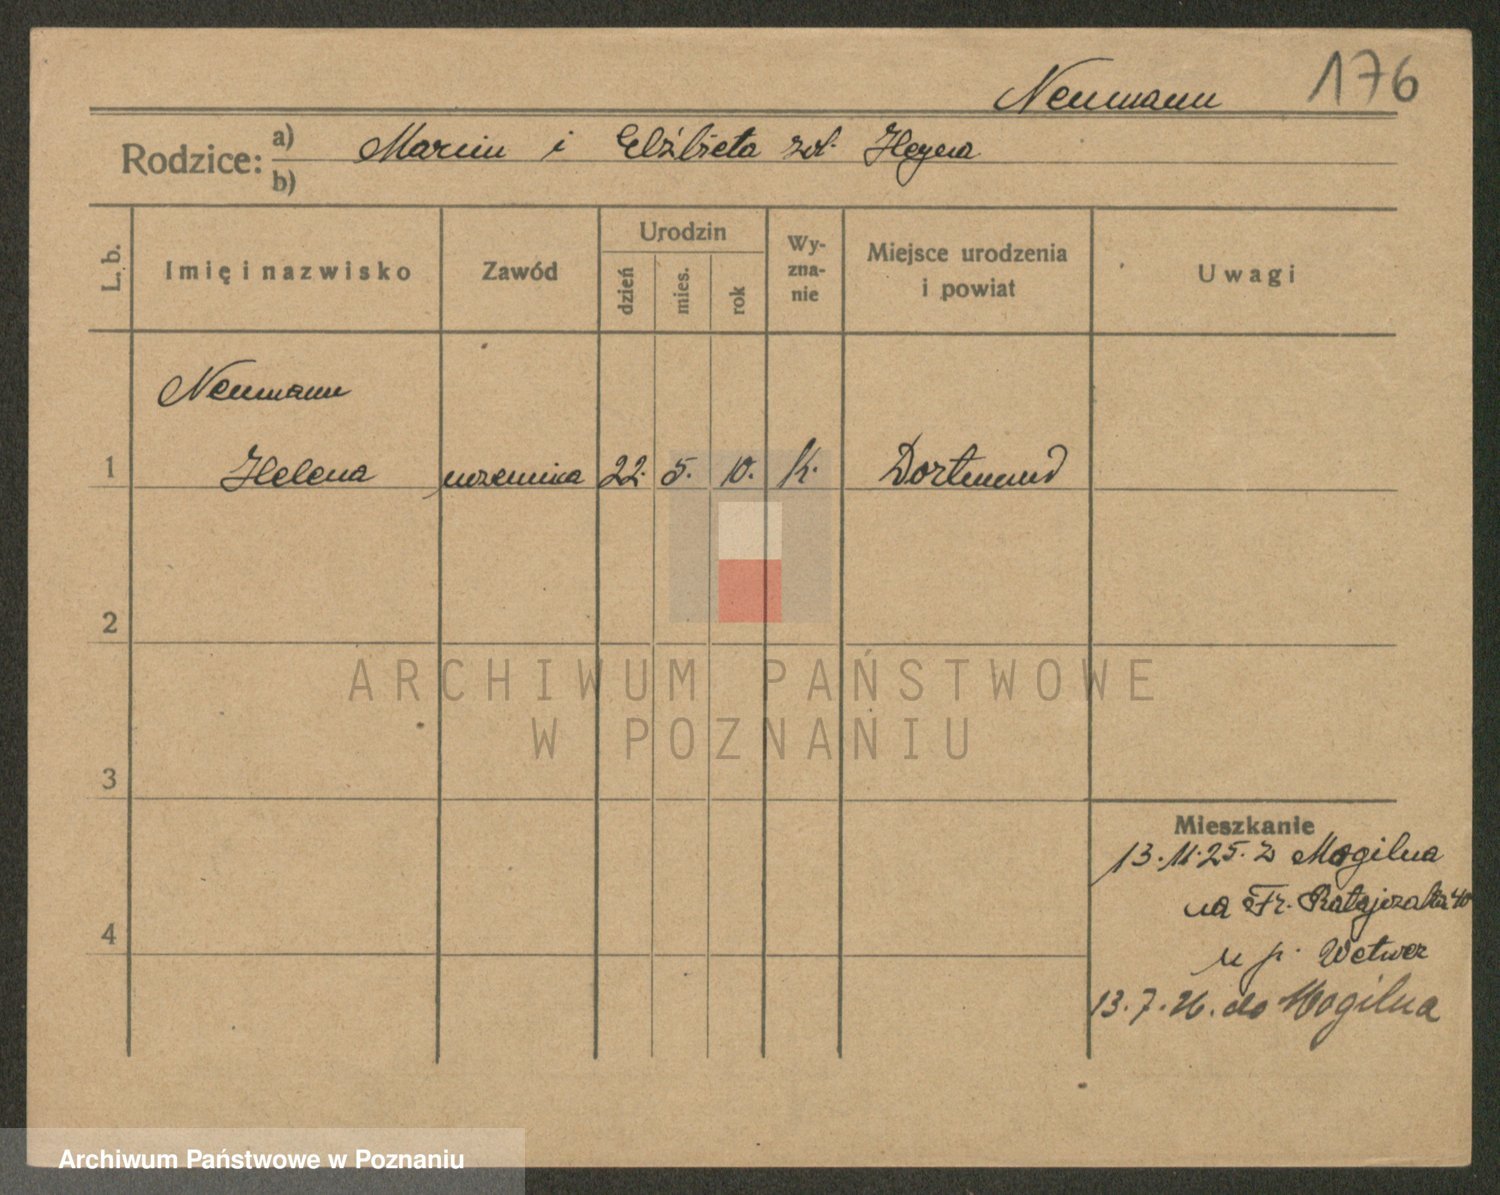 Neumann 176
Rodzice: a) Marcin i Elżbieta zd. Heyna
b)
L. b.
Imię i nazwisko
Zawód
Urodzin
dzień
mies.
rok
Wy-
zna-
nie
Miejsce urodzenia
i powiat
Uwagi
Neumann
1 Helena uczennica 22. 5. 10. k. Dortmund
2
3
4
Mieszkanie
13.11.25. z Mogilna
na Fr. Ratajczaka 40
u p.
13.7.26. do Mogilna
ARCHIWUM PAŃSTWOWE
W POZNANIU
Archiwum Państwowe w Poznaniu